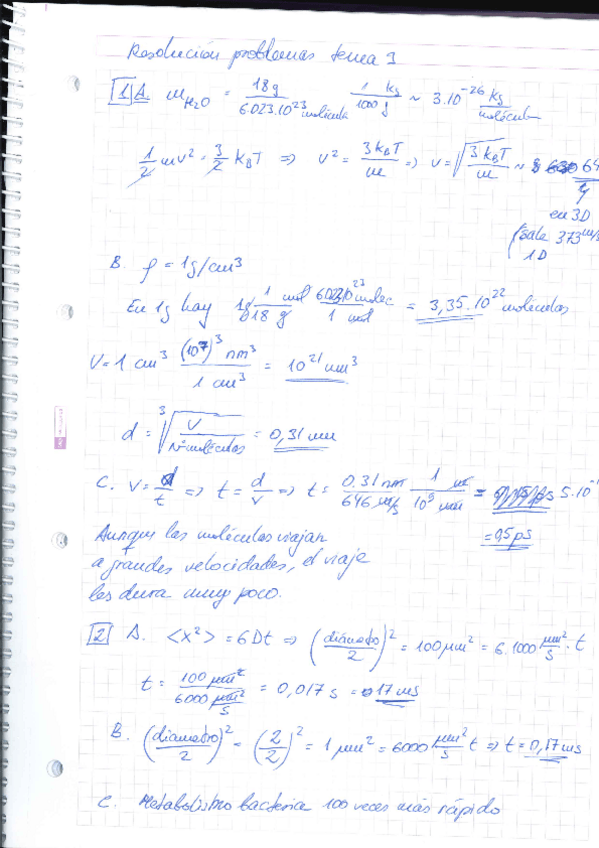 Resolución problemas tema 3
1 A. m_H2O = 18g / 6.023.10^23 molécula 1 kg / 1000 g ~ 3.10^-26 kg / molécula
1/2 mv² = 3/2 k_BT ⇒ v² = 3k_BT / m ⇒ v = √(3k_BT / m) ~ 64
en 3D
(sale 373 m/s
1D
B. ρ = 1g/cm³
En 1g hay 1g 1 mol / 18 g 6023.10^23 molec / 1 mol = 3,35.10^22 moléculas
V = 1 cm³ (10^7)³ nm³ / 1 cm³ = 10^21 nm³
d = ³√(V / Nº moléculas) = 0,31 nm
C. v = d/t ⇒ t = d/v ⇒ t = 0.31 nm / 646 m/s 1 m / 10^9 nm = 5.10^-1
= 0,5 ps
Aunque las moléculas viajan
a grandes velocidades, el viaje
les dura muy poco.
2 A. <x²> = 6Dt ⇒ (diámetro / 2)² = 100 μm² = 6.1000 μm²/s . t
t = 100 μm² / 6000 μm²/s = 0,017 s = 17 ms
B. (diametro / 2)² = (2/2)² = 1 μm² = 6000 μm²/s t ⇒ t = 0,17 ms
C. Metabolismo bacteria 100 veces más rápido